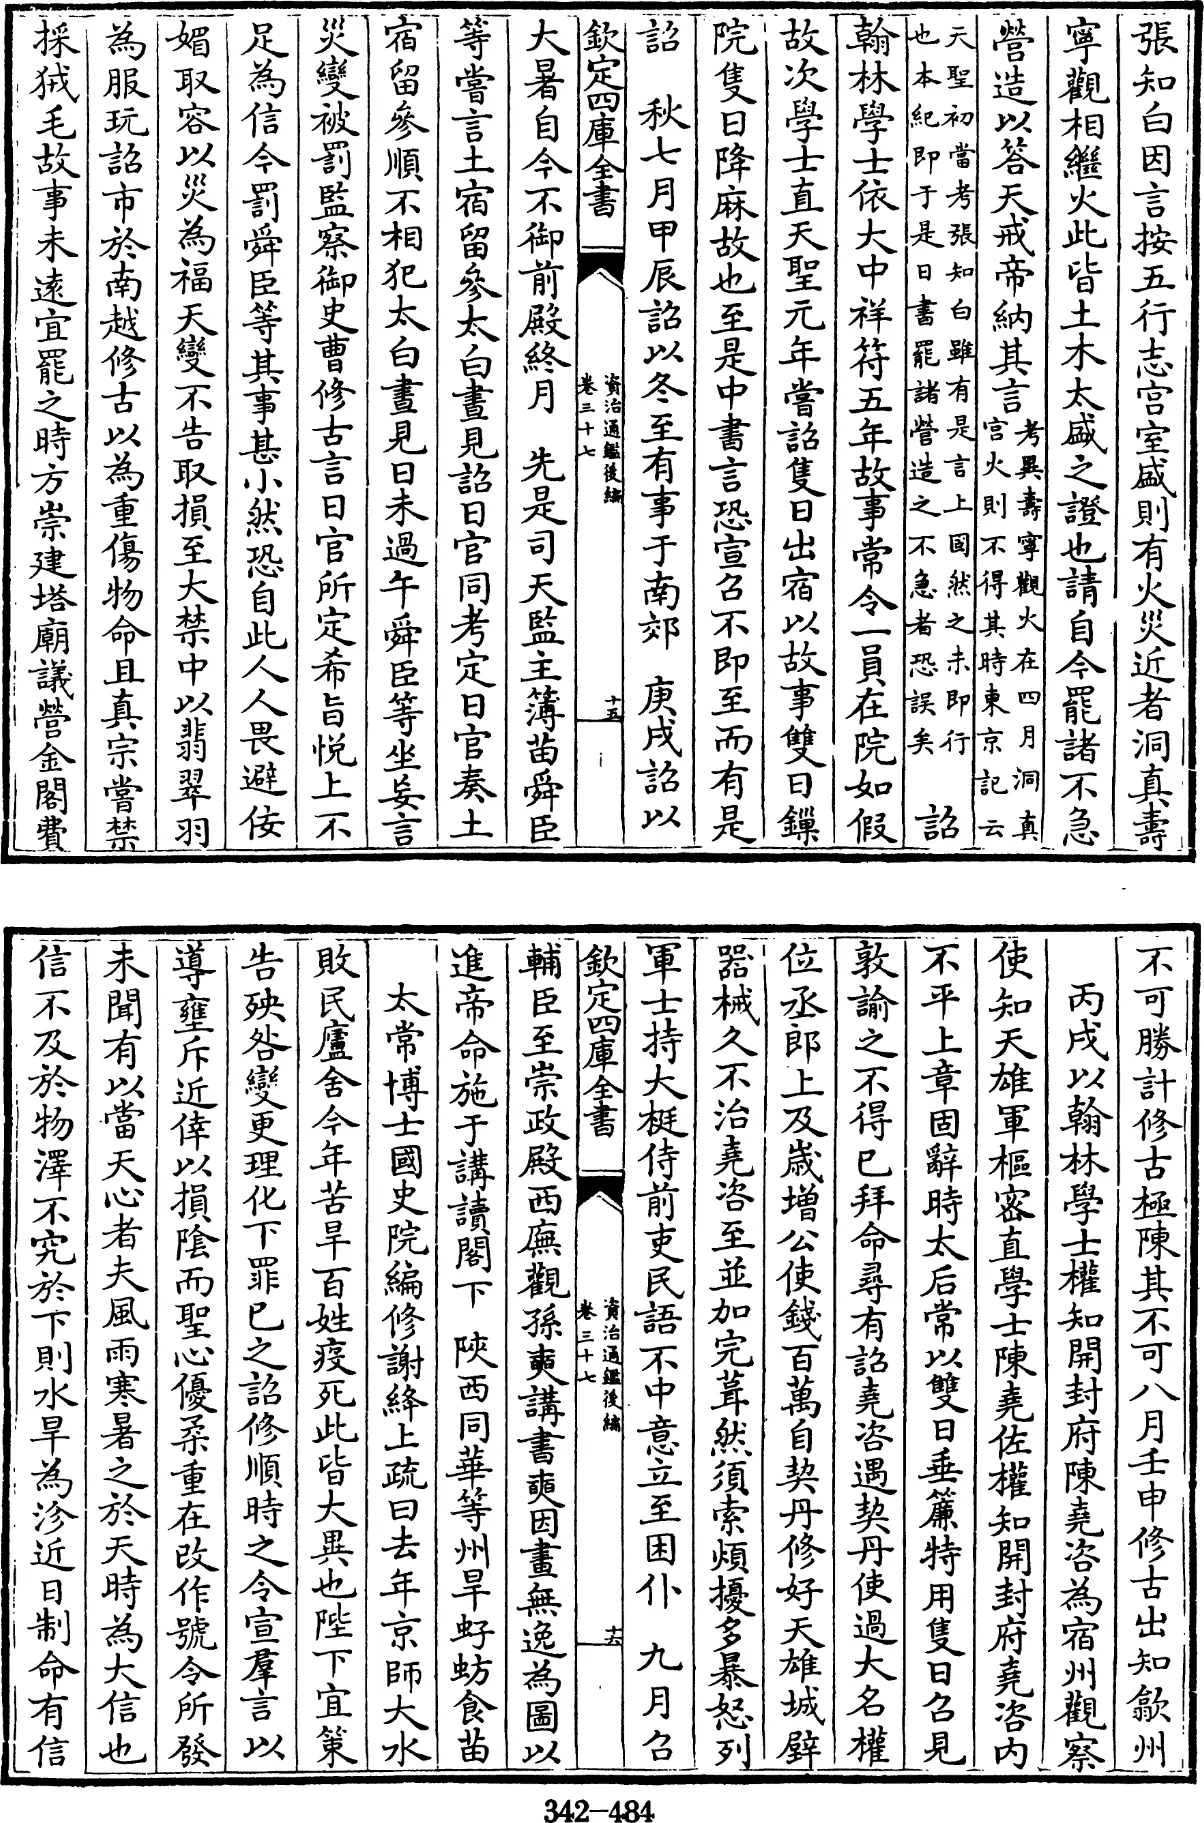 張知白因言按五行志宫室盛則有火災近者洞真壽
寧觀相繼火此皆土木太盛之證也請自今罷諸不急
營造以答天戒帝納其言
考異壽寧觀火在四月洞真
宫火則不得其時東京記云
天聖初當考張知白雖有是言上固然之未即行
也本紀即于是日書罷諸營造之不急者恐誤矣
詔
翰林學士依大中祥符五年故事常令一員在院如假
故次學士直天聖元年嘗詔隻日出宿以故事雙日鏁
院隻日降麻故也至是中書言恐宣召不即至而有是
詔　秋七月甲辰詔以冬至有事于南郊　庚戌詔以
欽定四庫全書
資治通鑑後編
卷三十七
十五
大暑自今不御前殿終月　先是司天監主簿苗舜臣
等嘗言土宿留參太白晝見詔日官同考定日官奏土
宿留參順不相犯太白晝見日未過午舜臣等坐妄言
災變被罰監察御史曹修古言日官所定希旨悦上不
足為信今罰舜臣等其事甚小然恐自此人人畏避佞
媚取容以災為福天變不告取損至大禁中以翡翠羽
為服玩詔市於南越修古以為重傷物命且真宗嘗禁
採狨毛故事未遠宜罷之時方崇建塔廟議營金閣費
不可勝計修古極陳其不可八月壬申修古出知歙州
丙戌以翰林學士權知開封府陳堯咨為宿州觀察
使知天雄軍樞密直學士陳堯佐權知開封府堯咨内
不平上章固辭時太后常以雙日垂簾特用隻日召見
敦諭之不得已拜命尋有詔堯咨遇契丹使過大名權
位丞郎上及歲增公使錢百萬自契丹修好天雄城壁
器械久不治堯咨至並加完葺然須索煩擾多暴怒列
軍士持大梃侍前吏民語不中意立至困仆　九月召
欽定四庫全書
資治通鑑後編
卷三十七
十六
輔臣至崇政殿西廡觀孫奭講書奭因畫無逸為圖以
進帝命施于講讀閣下　陜西同華等州旱虸蚄食苗
太常博士國史院編修謝絳上疏曰去年京師大水
敗民廬舍今年苦旱百姓疫死此皆大異也陛下宜策
告殃咎變更理化下罪已之詔修順時之令宣羣言以
導壅斥近倖以損陰而聖心優柔重在改作號令所發
未聞有以當天心者夫風雨寒暑之於天時為大信也
信不及於物澤不究於下則水旱為沴近日制命有信
342-484